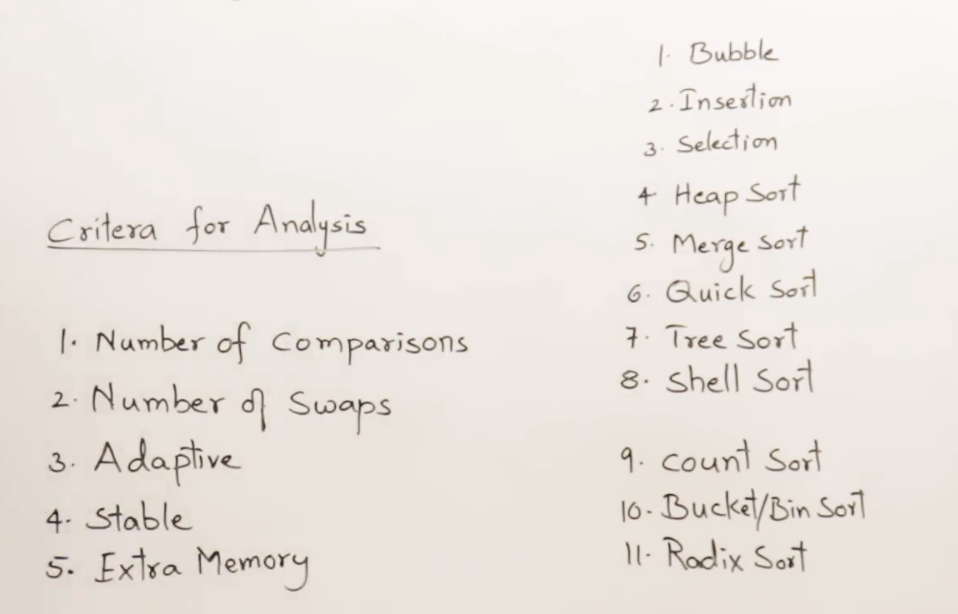 Critera for Analysis
1. Number of Comparisons
2. Number of Swaps
3. Adaptive
4. Stable
5. Extra Memory
1. Bubble
2. Insertion
3. Selection
4 Heap Sort
5. Merge Sort
6. Quick Sort
7. Tree Sort
8. Shell Sort
9. Count Sort
10. Bucket/Bin Sort
11. Radix Sort